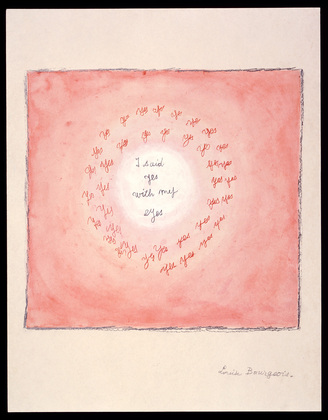 yes yes yes yes yes yes yes yes yes yes yes yes yes yes yes yes yes yes yes yes yes
yes yes yes yes yes yes yes yes yes yes yes yes yes yes yes yes yes yes
I said
yes
with my
eyes
Louise Bourgeois.